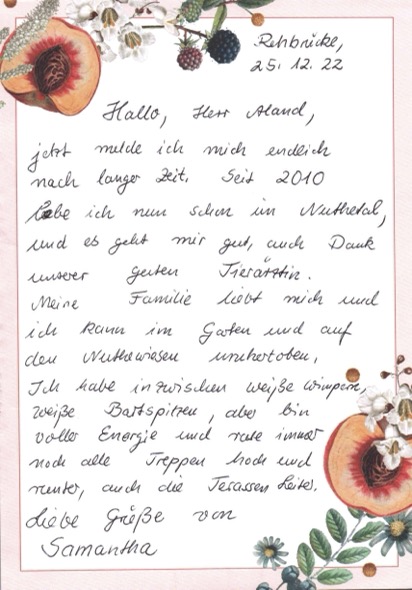 Rehbrücke,
25. 12. 22
Hallo, Herr Aland,
jetzt melde ich mich endlich
nach langer Zeit. Seit 2010
lebe ich nun schon im Nuthetal,
und es geht mir gut, auch Dank
unserer guten Tierärztin.
Meine Familie liebt mich und
ich kann im Garten und auf
den Nuthewiesen umhertoben.
Ich habe inzwischen weiße Wimpern,
weiße Bartspitzen, aber bin
voller Energie und rase immer
noch alle Treppen hoch und
runter, auch die Terassen Leiter.
Liebe Grüße von
Samantha